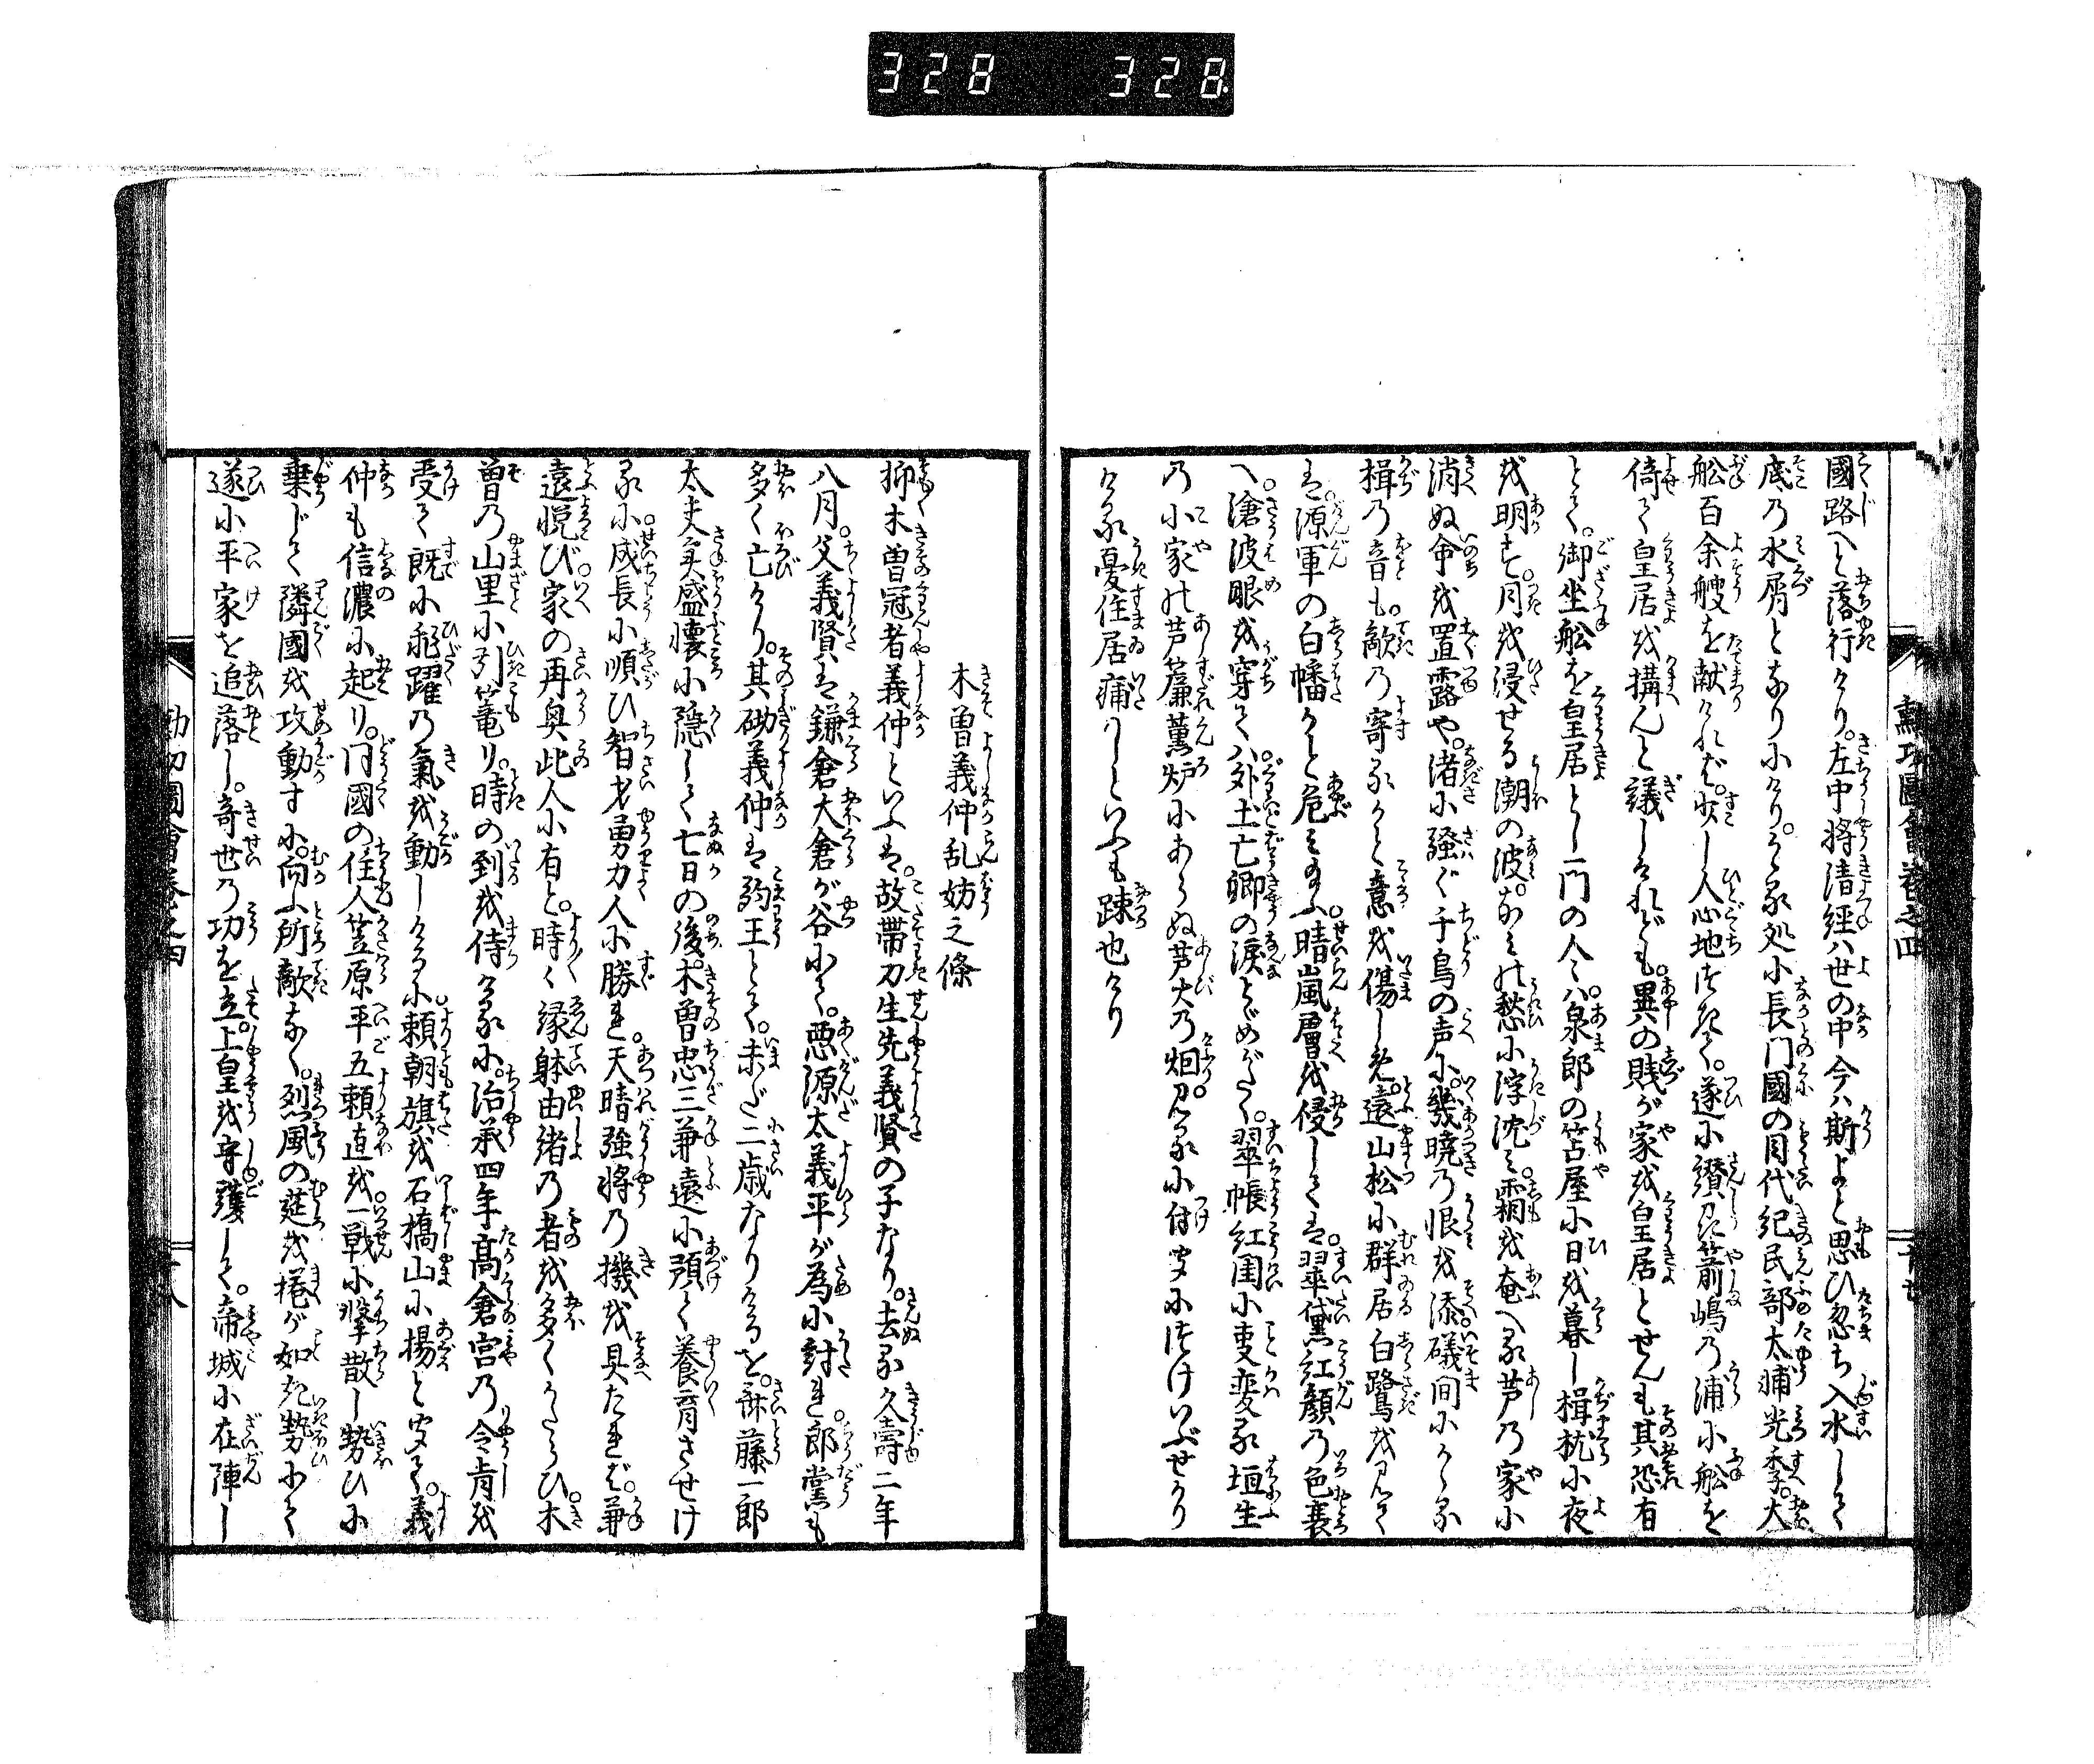 328 328
國路へと落行けり。左中將清經ハ世の中今ハ斯よと思ひ忽ち入水して
底乃水屑となりにけり。かゝる処に長門國の目代紀民部太輔光季。大
舩百余艘を献ければ。少し人心地つきて。遂に讃岐箭嶋乃浦に舩を
倚て皇居を搆んと議しけれども。異の賎が家を皇居とせんも其恐有
とて。御坐舩を皇居とし一門の人々ハ。泉郎の笘屋に日を暮し楫枕に夜
を明す。月を浸せる潮の波。かゝる愁に浮沈ミ。霜を奄へる芦乃家に
消ぬ命を置露や。渚に騒ぐ千鳥の声に。幾暁乃恨を添。礒間にかゝる
楫乃音も。敵乃寄るかと意を傷しめ。遠山松に群居白鷺を見て
は。源軍の白幡かと危ミ思ふ。晴嵐層を侵しては。翠黛紅顔乃色衰
へ。滄波眼を穿て。外土亡卿の涙とゞめがたく。翠帳紅閨に事変る垣生
乃小家の芦簾薫炉にあらぬ芦火乃烟。見るに付聞につけいぶせかり
ける憂住居痛ハしといふも疎也けり
木曽義仲乱妨之條
抑木曽冠者義仲といふは。故帯刀先生義賢の子なり。去る久壽二年
八月。父義賢は鎌倉大倉が谷にて。悪源太義平が為に討れ。郎黨も
多く亡けり。其砌義仲は駒王とて。未だ二歳なりけるを。斎藤一郎
太夫実盛懐に隠して七日の後。木曽忠三兼遠に預て養育させけ
るに。成長に順ひ智才勇力人に勝れ。天晴強将乃機を具たれば。兼
遠悦び。家の再興此人に有と。時々縁躰由緒乃者を多くかたらひ。木
曽乃山里に引篭り。時の到を待けるに。治承四年高倉宮乃令旨を
受て既に飛躍乃氣を動しけるに。頼朝旗を石橋山に揚と聞て。義
仲も信濃に起り。同國の住人笠原平五頼直を。一戦に撃散し勢ひに
乗じて隣國を攻動すに。向ふ所敵なく。烈風の莚を捲が如き勢にて
遂に平家を追落し。寄世乃功を立。上皇を守護して。帝城に在陣し